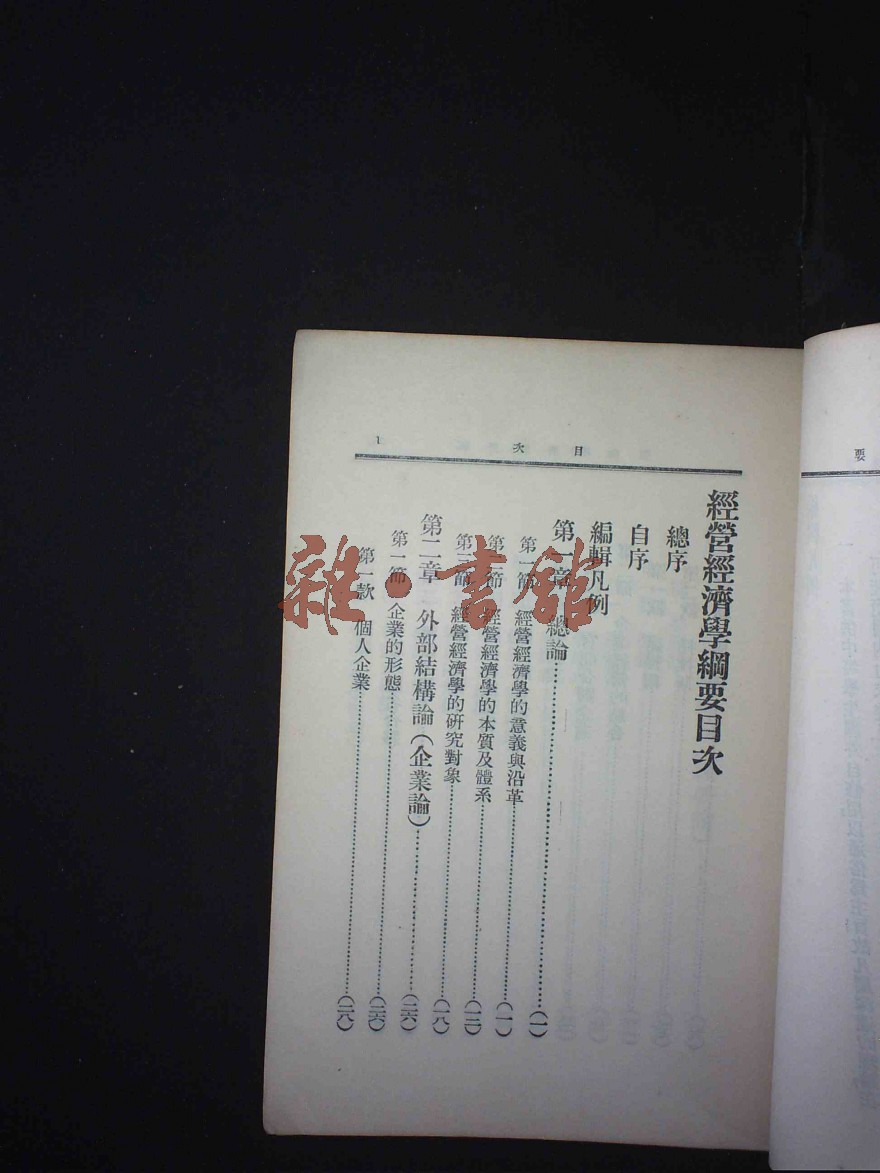 目次
1
經營經濟學綱要目次
總序
自序
編輯凡例
第一章 總論……(一)
第一節 經營經濟學的意義與沿革……(一)
第二節 經營經濟學的本質及體系……(一二)
第三節 經營經濟學的研究對象……(一八)
第二章 外部結構論(企業論)……(二六)
第一節 企業的形態……(二六)
第一款 個人企業……(二八)
要
雜·書館